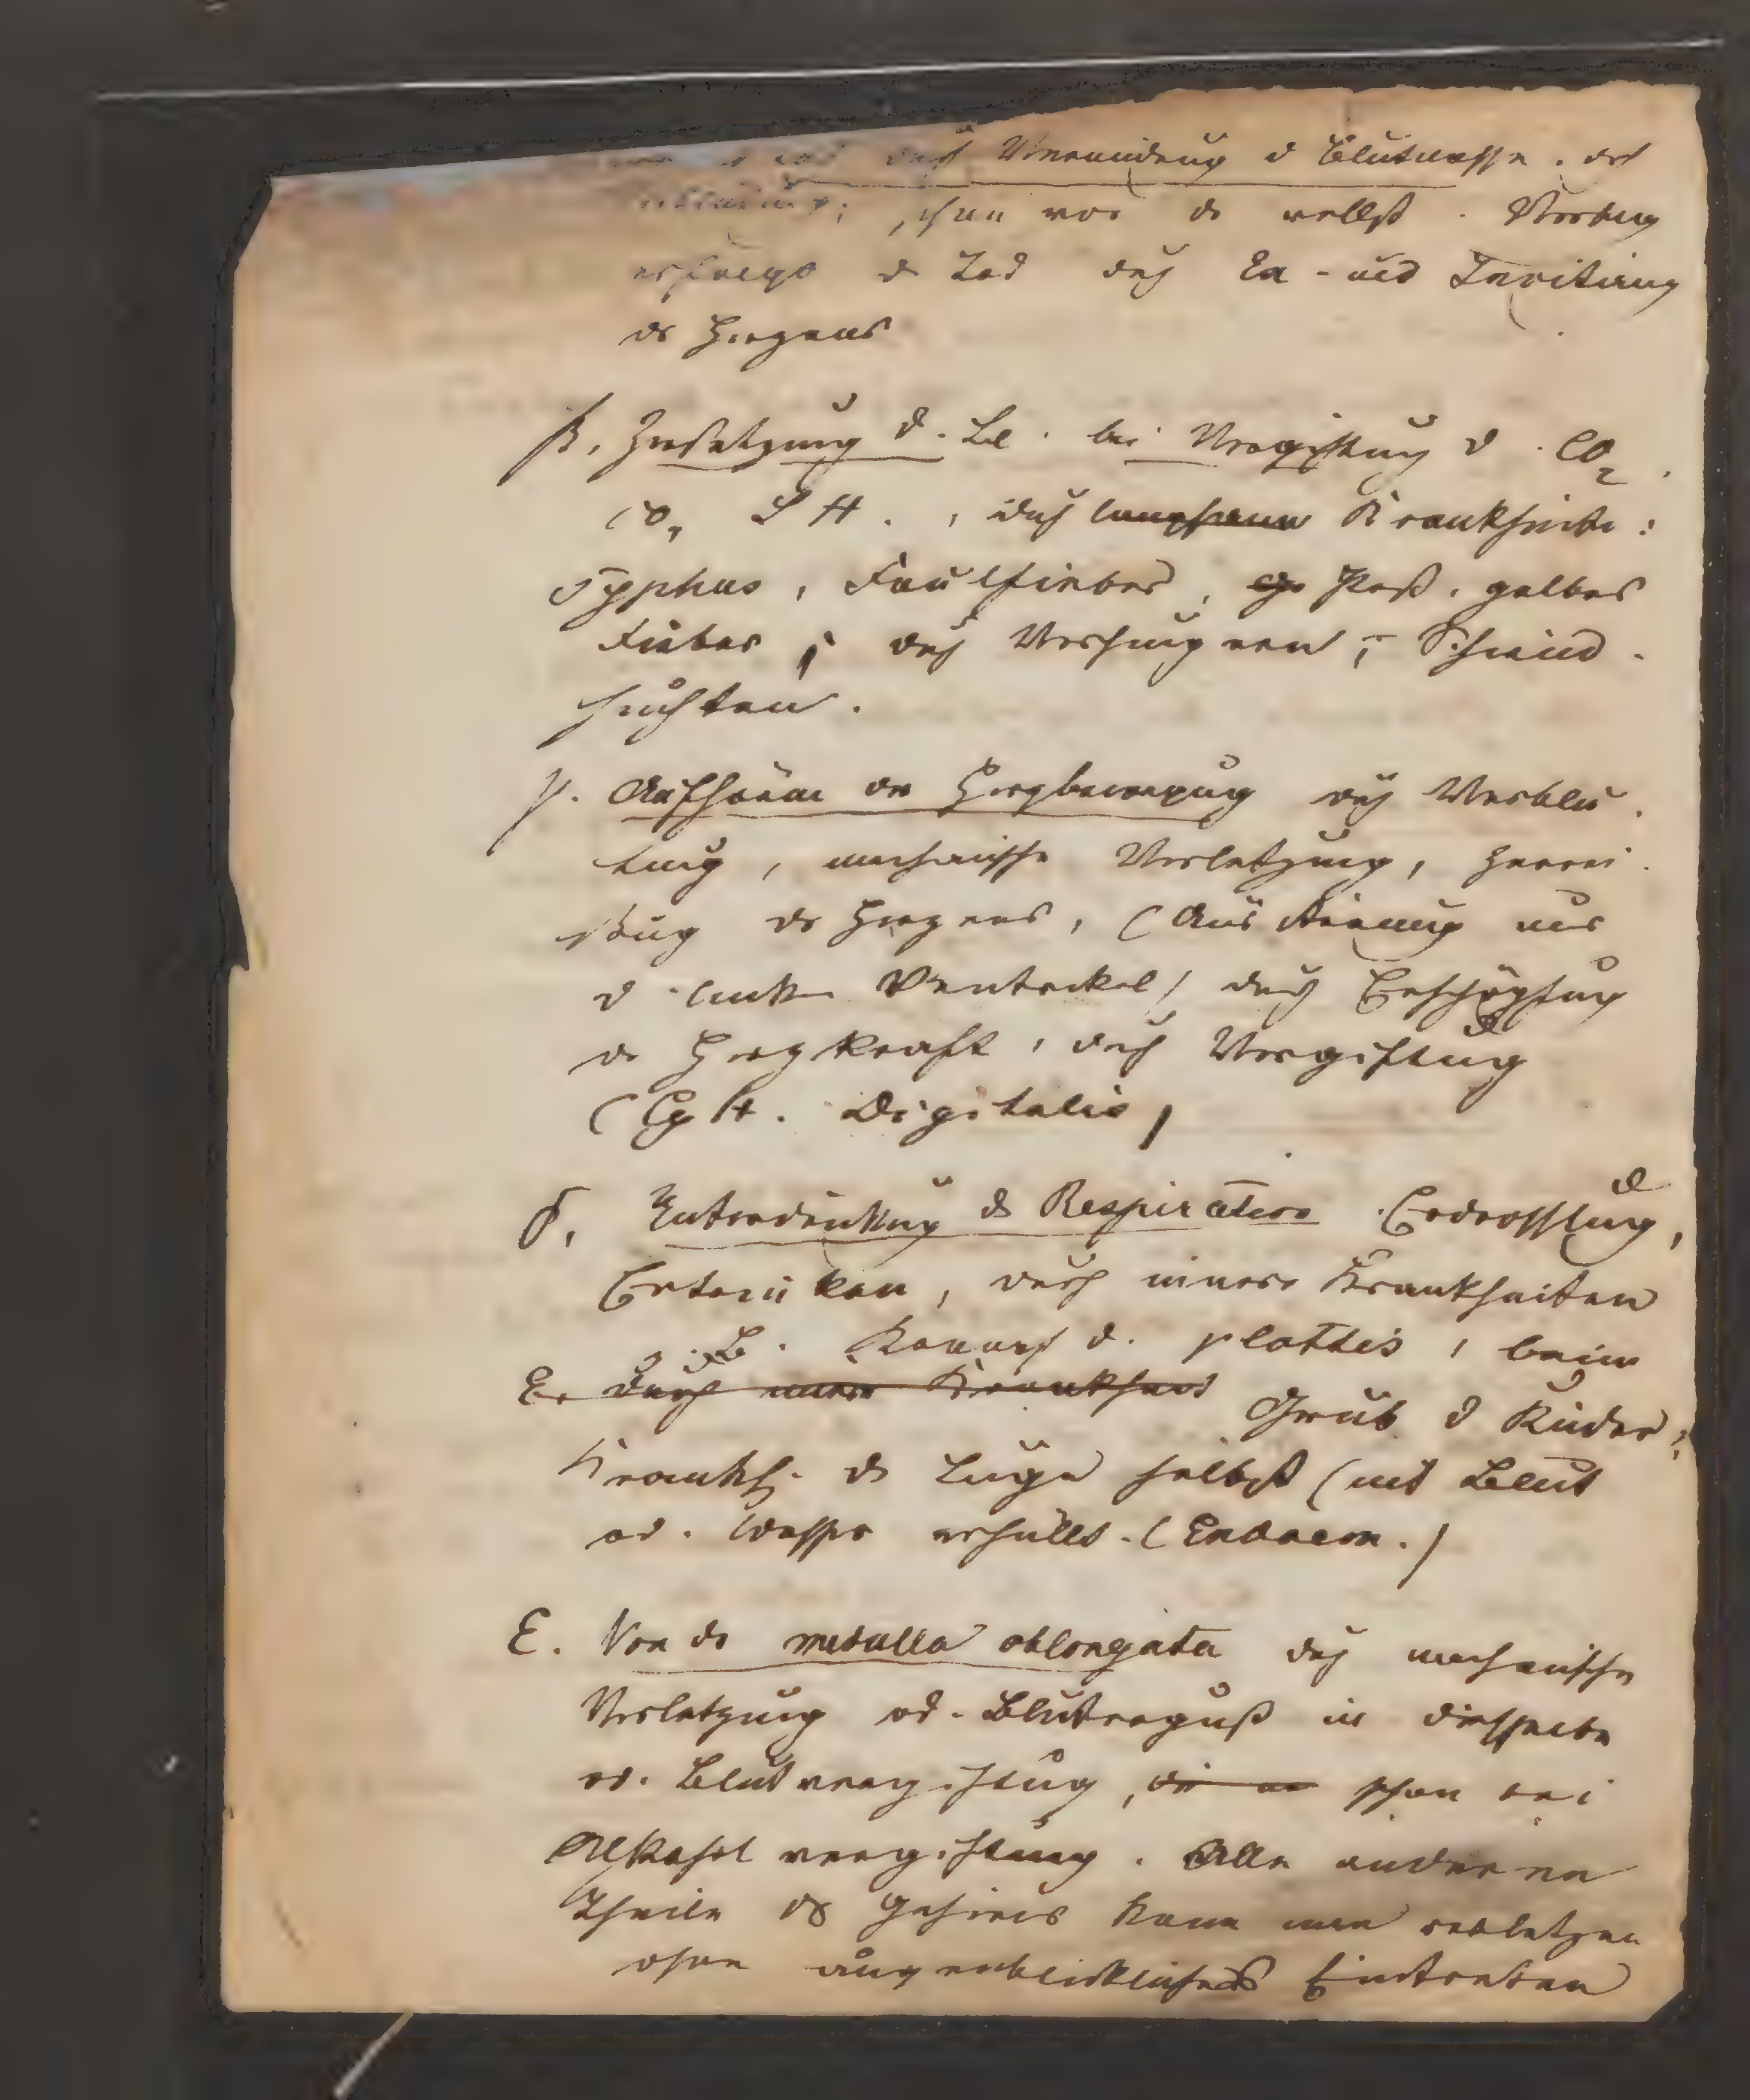 durch Verminderung d Blutmasse. durch
schon vor der vollst. Verblutung
erfolgt d Tod durch En- und Inanitiirung
des Herzens
β. Zersetzung d. Bl. bei Vergiftung d. CO2,
CO, SH., durch langsame Krankheiten:
Typhus, Faulfieber, Pest, gelbes
Fieber; durch Verhungern; Schwind-
suchten.
γ. Aufhören der Herzbewegung durch Verblu-
tung, mechanische Verletzung, Zerrei-
ßung des Herzens, (Ausströmung aus
d. linken Ventrikel) durch Erschöpfung
der Herzkraft, durch Vergiftung
(CyH. Digitalis)
δ. Unterdrückung der Respiration Erdrosslung,
Ertrinken, durch innere Krankheiten
z. B. d. glottis, beim
E. durch innere Krankheit Croup d Kinder;
Krankh. der Lunge selbst (mit Blut
od. Wasser erfüllt.
ε. Von der medulla oblongata durch mechanische
Verletzung od. Bluterguß in dieselbe
od. Blutvergiftung, schon bei
Alkoholvergiftung. Alle anderen
Theile des Gehirns kann man verletzen
ohne augenblickliches Eintreten